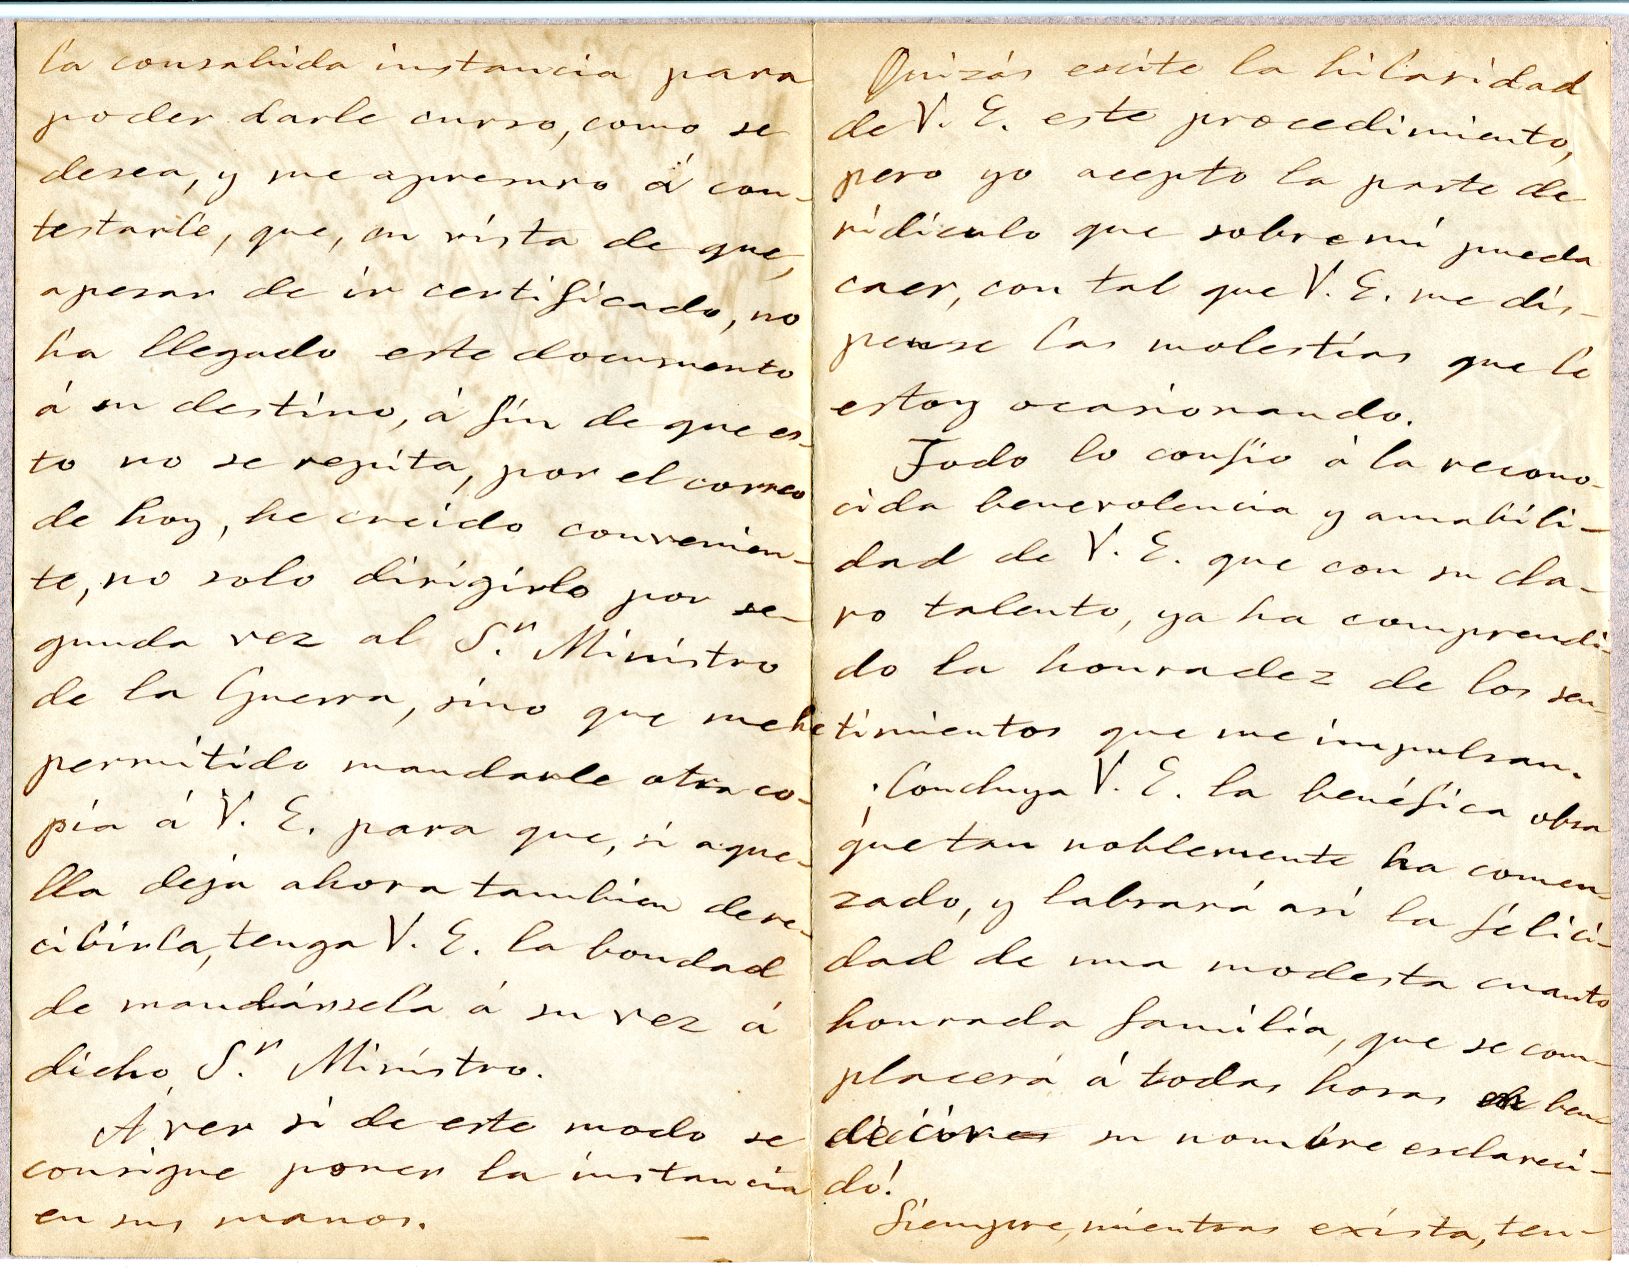 la consabida instancia para
poder darle curso, como se
desea, y me apresuro á con-
testarle, que, en vista de que,
apesar de ir certificado, no
ha llegado este documento
á su destino, á fin de que es-
to no se repita, por el correo
de hoy, he creido convenien-
te, no solo dirigirlo por se-
gunda vez al S.r Ministro
de la Guerra, sino que me he
permitido mandarle otra co-
pia á V. E. para que, si aque-
lla deja ahora tambien de re-
cibirla, tenga V. E. la bondad
de mandársela á su vez á
dicho S.r Ministro.
Á ver si de este modo se
consigue poner la instancia
en sus manos.
Quizás escite la hilaridad
de V. E. este procedimiento,
pero yo acepto la parte de
ridiculo que sobre mi pueda
caer, con tal que V. E. me dis-
pense las molestias que le
estoy ocasionando.
Todo lo confio á la recono-
cida benevolencia y amabili-
dad de V. E. que con su cla-
ro talento, ya ha comprendi-
do la honradez de los sen-
timientos que me impulsan.
¡Concluya V. E. la benéfica obra
que tan noblemente ha comen-
zado, y labrará así la felici-
dad de una modesta cuanto
honrada familia, que se com-
placerá á todas horas en ben-
decir su nombre esclareci-
do!
Siempre, mientras exista, ten-